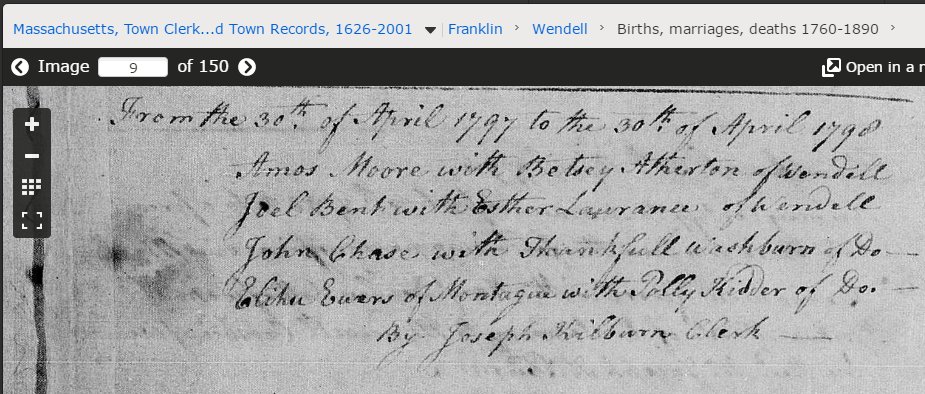 Massachusetts, Town Clerk...d Town Records, 1626-2001 Franklin > Wendell > Births, marriages, deaths 1760-1890 >
Image 9 of 150 Open in a n
From the 30th. of April 1797 to the 30th. of April 1798
Amos Moore with Betsey Atherton of Wendell
Joel Bent with Esther Lawrance of Wendell
John Chase with Thankfull Washburn of Do
Elihu Ewers of Montague with Polly Kidder of Do.
By Joseph Kilburn Clerk